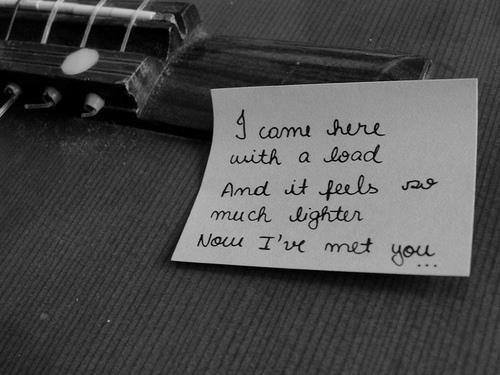 I came here
with a load
And it feels so
much lighter
Now I've met you...